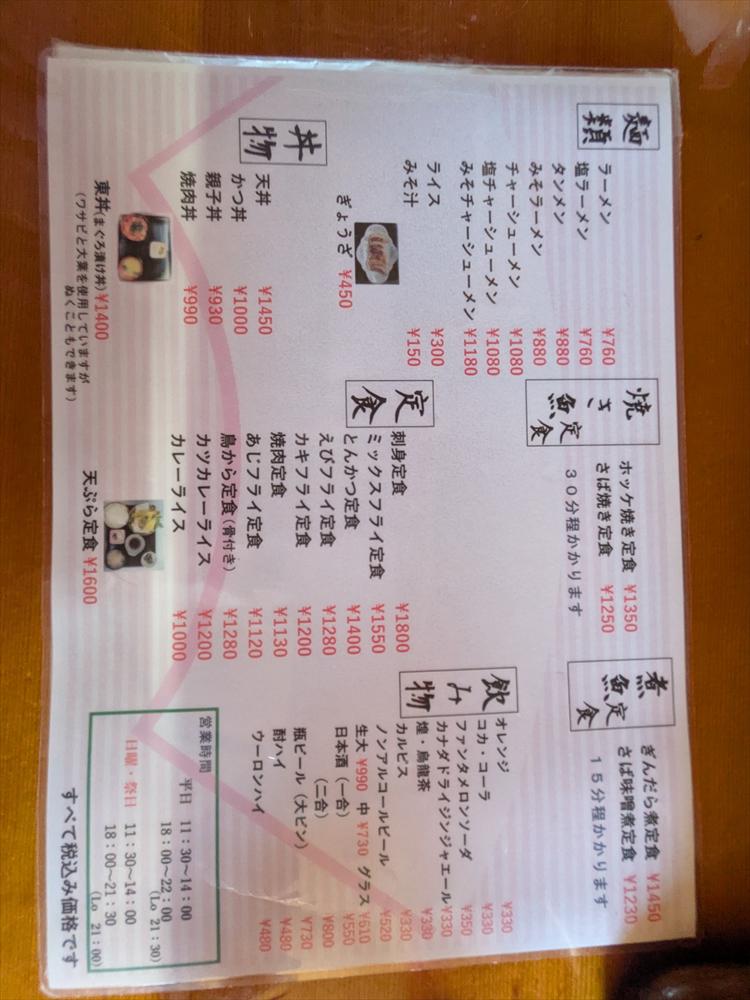 麺類
ラーメン ¥760
塩ラーメン ¥760
タンメン ¥880
みそラーメン ¥880
チャーシューメン ¥1080
塩チャーシューメン ¥1080
みそチャーシューメン ¥1180
ライス ¥300
みそ汁 ¥150
ぎょうざ ¥450
丼物
天丼 ¥1450
かつ丼 ¥1000
親子丼 ¥930
焼肉丼 ¥990
東丼(まぐろ漬け丼) ¥1400
(ワサビと大葉を使用していますが
ぬくこともできます)
焼き魚定食
ホッケ焼き定食 ¥1350
さば焼き定食 ¥1250
30分程かかります
定食
刺身定食 ¥1800
ミックスフライ定食 ¥1550
とんかつ定食 ¥1400
えびフライ定食 ¥1280
カキフライ定食 ¥1200
焼肉定食 ¥1130
あじフライ定食 ¥1120
鳥から定食(骨付き) ¥1280
カツカレーライス ¥1200
カレーライス ¥1000
天ぷら定食 ¥1600
煮魚定食
ぎんだら煮定食 ¥1450
さば味噌煮定食 ¥1230
15分程かかります
飲み物
オレンジ ¥330
コカ・コーラ ¥330
ファンタメロンソーダ ¥350
カナダドライジンジャエール ¥330
煌・烏龍茶 ¥330
カルピス ¥330
ノンアルコールビール ¥520
生大 ¥990 中 ¥730 グラス ¥610
日本酒(一合) ¥550
(二合) ¥800
瓶ビール(大ビン) ¥730
酎ハイ ¥480
ウーロンハイ ¥480
営業時間
平日 11:30~14:00
18:00~22:00
(Lo 21:30)
日曜・祭日 11:30~14:00
18:00~21:30
(Lo 21:00)
すべて税込み価格です